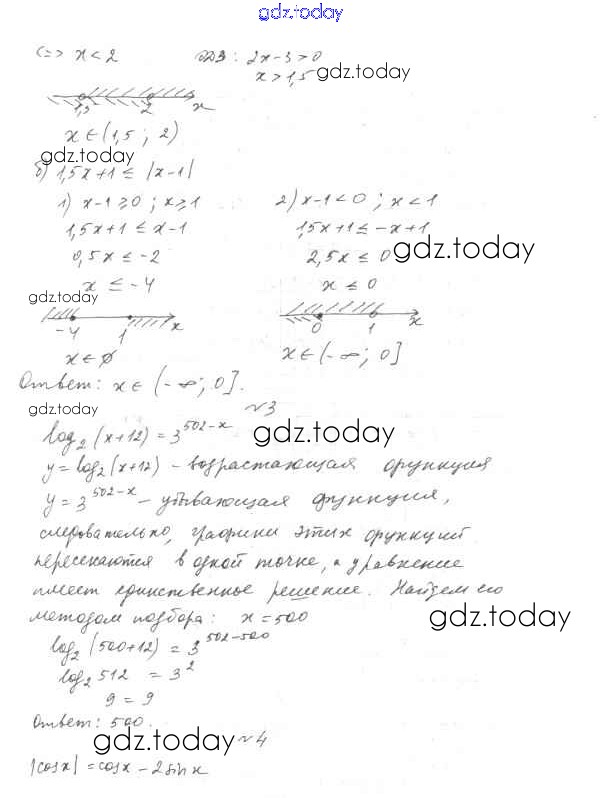 gdz.today
<=> x < 2 ОДЗ: 2x-3>0
x > 1,5 gdz.today
1,5 2 x
x ∈ (1,5; 2)
gdz.today
б) 1,5x+1 ≤ |x-1|
1) x-1 ≥ 0; x ≥ 1 2) x-1 < 0; x < 1
1,5x+1 ≤ x-1 1,5x+1 ≤ -x+1
0,5x ≤ -2 2,5x ≤ 0 gdz.today
x ≤ -4 x ≤ 0
gdz.today
-4 1 x 0 1 x
x ∈ ∅ x ∈ (-∞; 0]
Ответ: x ∈ (-∞; 0].
gdz.today №3
log₂(x+12) = 3^(502-x) gdz.today
y = log₂(x+12) - возрастающая функция
y = 3^(502-x) - убывающая функция,
следовательно, графики этих функций
пересекаются в одной точке, и уравнение
имеет единственное решение. Найдем его
методом подбора: x = 500 gdz.today
log₂(500+12) = 3^(502-500)
log₂ 512 = 3²
9 = 9
Ответ: 500.
gdz.today №4
|cos x| = cos x - 2 sin x